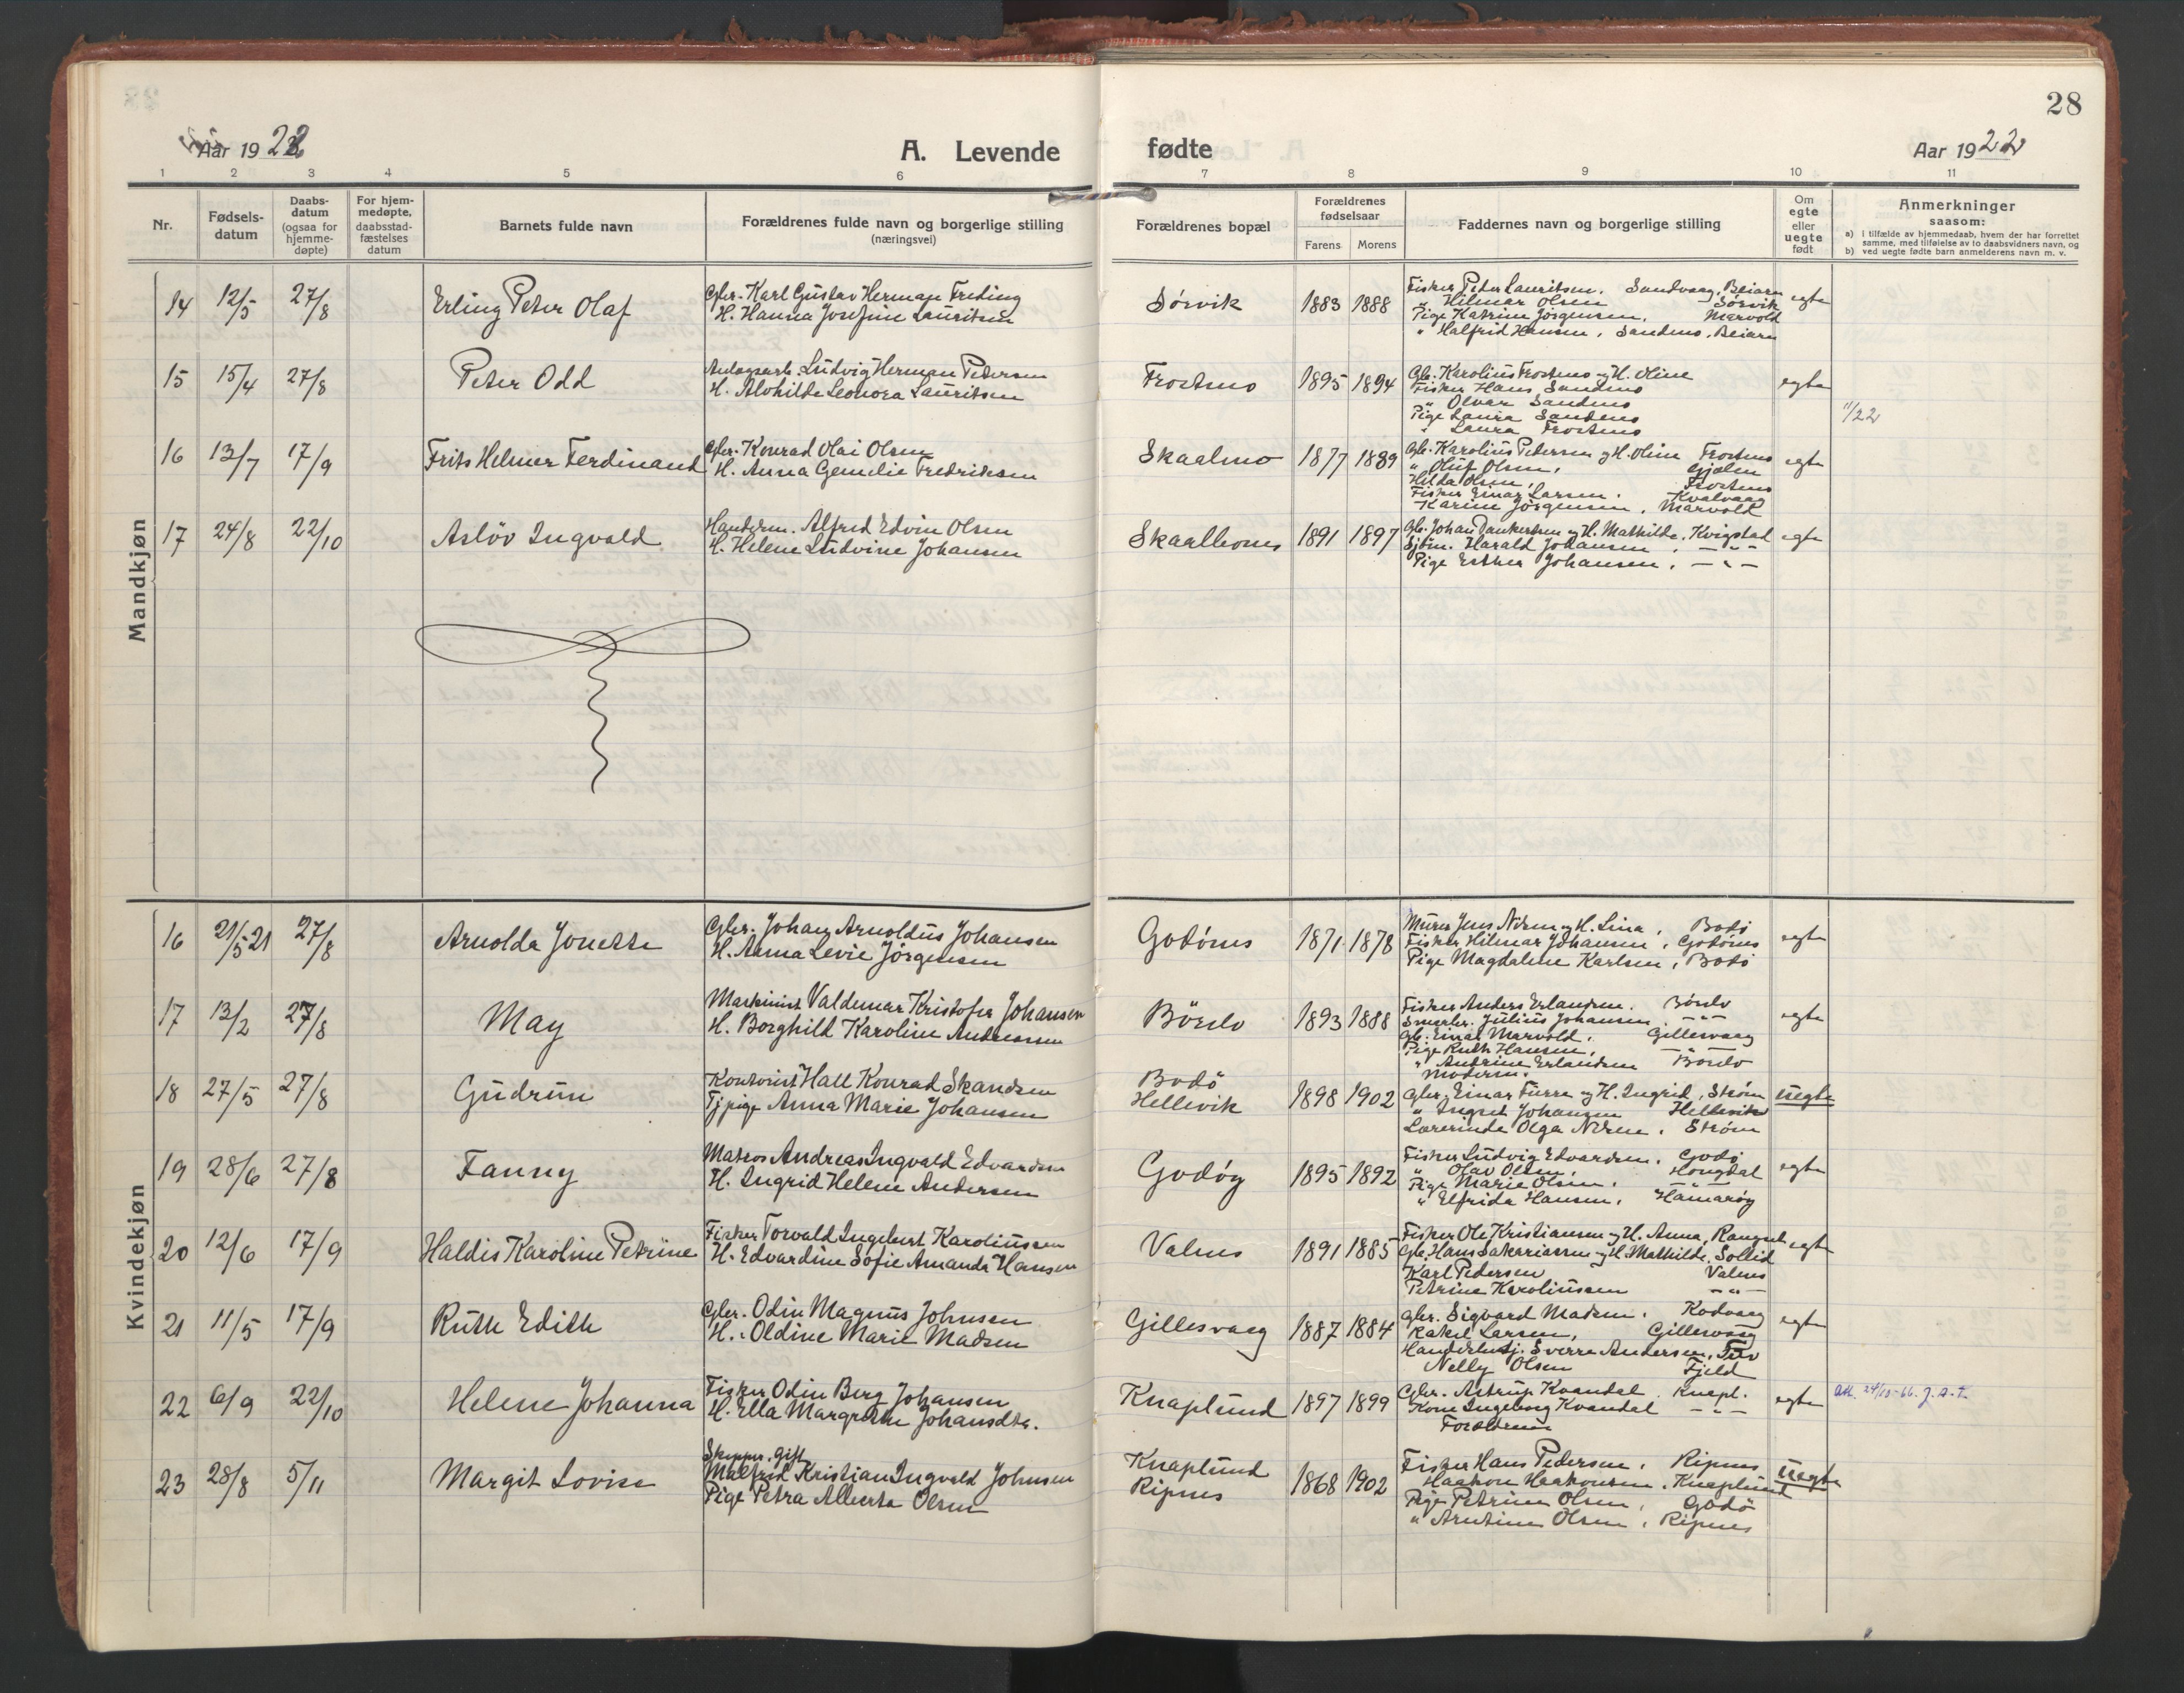 28
Aar 1922
A. Levende
fødte
Aar 1922
1 2 3 4 5 6
7 8 9 10 11
Nr.
Fødsels-
datum
Daabs-
datum
(ogsaa for
hjemme-
døpte)
For hjem-
medøpte,
daabsstad-
fæstelses
datum
Barnets fulde navn
Forældrenes fulde navn og borgerlige stilling
(næringsvei)
Forældrenes bopæl
Forældrenes
fødselsaar
Farens Morens
Faddernes navn og borgerlige stilling
Om
egte
eller
uegte
født
Anmerkninger
saasom:
a) i tilfælde av hjemmedaab, hvem der har forrettet
samme, med tilføielse av to daabsvidners navn, og
b) ved uegte fødte barn anmelderens navn m. v.
Mandkjøn
14 12/5 27/8 Erling Peter Olaf
Gbr. Karl Gustav Herman Freding
H. Hanna Josefine Lauritsen
Sørvik 1883 1888
Fisker Peter Lauritsen. Sandvaag, Beiarn
" Hilmar Olsen Sørvik
Pige Katrine Jörgensen, Marvold
" Halfrid Hansen, Sandmo, Beiarn
egte
15 15/4 27/8 Peter Odd
Anlægsarb. Ludvig Herman Pedersen
H. Alvhilde Leonora Lauritsen
Frostmo 1895 1894
Gb. Karolius Frostmo og H. Oline
Fisker Hans Sandmo
" Olvar Sandmo
Pige Laura Sandmo
" Laura Frostmo
egte
11/22
16 13/7 17/9 Frits Helmer Ferdinand
Gbr. Konrad Olai Olsen
H. Anna Gemelie Fredriksen
Skaalmo 1877 1889
Gb. Karolius Pedersen og H. Oline Frostmo
" Oluf Olsen, Gjælen
Hilda Olsen, Frostmo
Fisker Einar Larsen. Kvalvaag
Karine Jörgensen, Marvold
egte
17 24/8 22/10 Asløv Ingvald
Handelsm. Alfred Edvin Olsen
H. Helene Ludvine Johansen
1891 1897
Gb. Johan Dankertsen og H. Mathilde, Kvigstad
Sjöm. Harald Johansen, — " —
Pige Esther Johansen, — " —
egte
Kvindekjøn
16 21/5 21 27/8 Arnolda Jonette
Gbr. Johan Arnoldus Johansen
H. Anna Levie Jörgensen
Godönes 1871 1878
Murer Jens Nilsen og H. Lina, Bodö
Fisker Hilmar Johansen, Godönes
Pige Magdalene Karlsen, Bodö
egte
17 13/2 27/8 May
Maskinist Valdemar Kristofer Johansen
H. Borghild Karoline Andreassen
Börelv 1893 1888
Fisker Anders Erlandsen. Börelv
Julius Johansen — " —
Gb. Einar Marvold, Gillesvaag
Pige Ruth Hansen, — " —
" Andrine Erlandsen Börelv
Moderen.
egte
18 27/5 27/8 Gudrun
Kontorist Hall Konrad Skandsen
Tjpige Anna Marie Johansen
Bodö
Hellevik 1898 1902
Gbr. Einar Furre og H. Ingrid, Ström
" Ingvet Johansen Hellevik
Lærerinde Olga Nilsen, Ström
uegte
19 28/6 27/8 Fanny
Matros Andreas Ingvald Edvardsen
H. Ingrid Helene Andersen
Godöy 1895 1892
Fisker Ludvig Edvardsen, Godö
" Olav Olsen, Hongdal
Pige Marie Olsen, — " —
" Elfrida Hansen, Hamaröy
egte
20 12/6 17/9 Haldis Karoline Petrine
Fisker Torvald Ingebert Karoliussen
H. Edvardine Sofie Amanda Hansen
Valnes 1891 1885
Fisker Ole Kristiansen og H. Anna,
Gb. Hans Sakariassen og H. Mathilde, Sollid
Karl Pedersen Valnes
Petrine Karoliussen — " —
egte
21 11/5 17/9 Ruth Edith
Gbr. Odin Magnus Johnsen
H. Oldine Marie Madsen
Gillesvaag 1887 1884
Gbr. Sigvard Madsen, Kodvaag
Rakel Larsen, Gillesvaag
Handelsbetj. Sverre Andersen,
Nelly Olsen Fjeld
egte
22 6/9 22/10 Helene Johanna
Fisker Odin Berg Johansen
H. Ella Margrethe Johansdtr.
Knaplund 1897 1899
Gbr. Astrup Kvandal. Knapl.
Kone Ingeborg Kvandal — " —
Forældrene
egte
att. 24/10-66. J.A.T.
23 28/8 5/11 Margit Lovise
Skipper. gift
Malfrid Kristian Ingvald Johnsen
Pige Petra Alberta Olsen
Knaplund
Ripnes 1868 1902
Fisker Hans Pedersen, Ripnes
Haakon Haakonsen, Knaplund
Pige Petrine Olsen, Godö
" Arntine Olsen, Ripnes
uegte